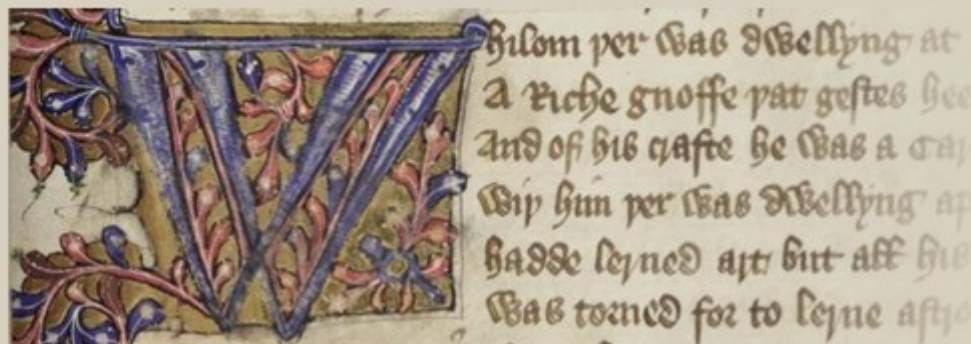 Whilom þer was dwellyng at
A Riche gnoffe þat gestes hee
And of his crafte he was a Car
wiþ him þer was dwellyng ap
hadde lerned art but all his
was torned for to lerne astro